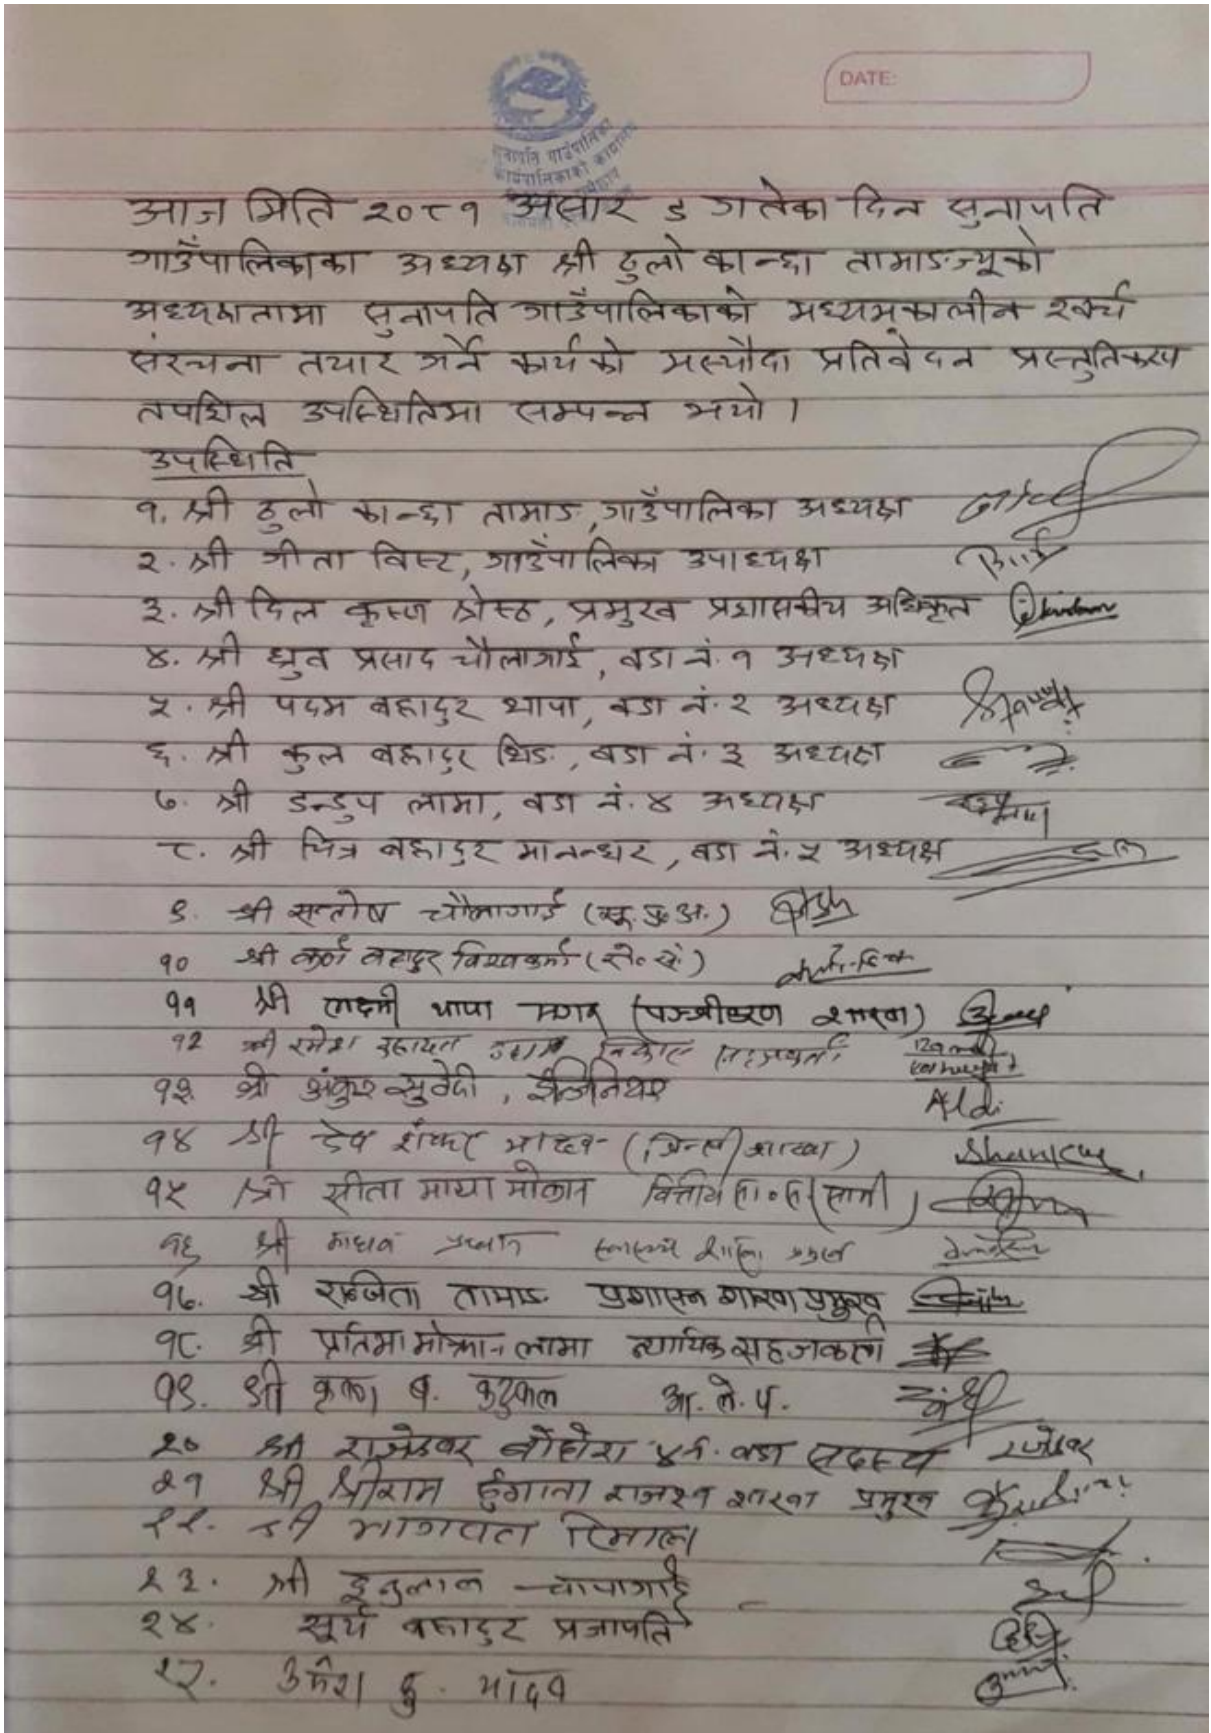 DATE:
आज मिति २०८१ असार ३ गतेका दिन सुनापति
गाउँपालिकाका अध्यक्ष श्री ठुलो कान्छा तामाङज्यूको
अध्यक्षतामा सुनापति गाउँपालिकाको मध्यमकालीन खर्च
संरचना तयार गर्ने कार्यको मस्यौदा प्रतिवेदन प्रस्तुतिकरण
तपशिल उपस्थितिमा सम्पन्न भयो ।
उपस्थिति
१. श्री ठुलो कान्छा तामाङ, गाउँपालिका अध्यक्ष
२. श्री गीता विष्ट, गाउँपालिका उपाध्यक्ष
३. श्री दिल कृष्ण श्रेष्ठ, प्रमुख प्रशासकीय अधिकृत
४. श्री ध्रुव प्रसाद चौलागाई, वडा नं. १ अध्यक्ष
५. श्री पदम बहादुर थापा, वडा नं. २ अध्यक्ष
६. श्री कुल बहादुर थिङ, वडा नं. ३ अध्यक्ष
७. श्री डन्डुप लामा, वडा नं. ४ अध्यक्ष
८. श्री चित्र बहादुर मानन्धर, वडा नं. ५ अध्यक्ष
९. श्री सन्तोष चौलागाई (सू. प्र. अ.)
१० श्री कर्ण बहादुर विश्वकर्मा
११ श्री लक्ष्मी थापा मगर (पञ्जीकरण शाखा)
१२ श्री रमेश
१३. श्री अंकुर सुवेदी, ईन्जिनियर
१४ श्री देव शंकर यादव (जिन्सी शाखा) Shankar
१५ श्री सीता माया मोक्तान वित्तीय
१६ श्री माधव प्रधान स्वास्थ्य शाखा प्रमुख
१७. श्री रन्जिता तामाङ प्रशासन शाखा प्रमुख
१८. श्री प्रतिमा मोक्तान लामा न्यायिक सहजकर्ता
१९. श्री कृष्ण ब. आ. ले. प.
२० श्री राजेश्वर बोहोरा ४ नं. वडा सदस्य राजेश्वर
२१ श्री श्रीराम ढुंगाना राजश्व शाखा प्रमुख
२२. श्री भागवत रिमाल
२३. श्री चापागाई
२४. सूर्य बहादुर प्रजापति
२५. उमेश कु. यादव